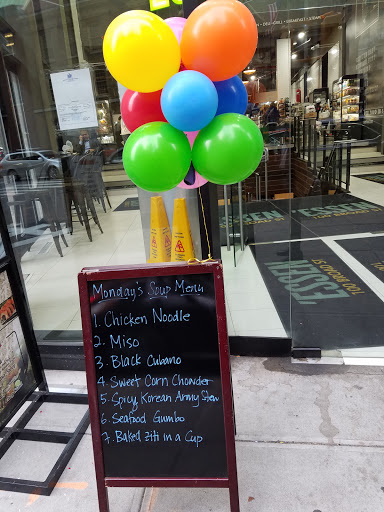 Monday's Soup Menu
1. Chicken Noodle
2. Miso
3. Black Cubano
4. Sweet Corn Chowder
5. Spicy Korean Army Stew
6. Seafood Gumbo
7. Baked Ziti in a Cup
ESSEN
ESSEN
ESSEN